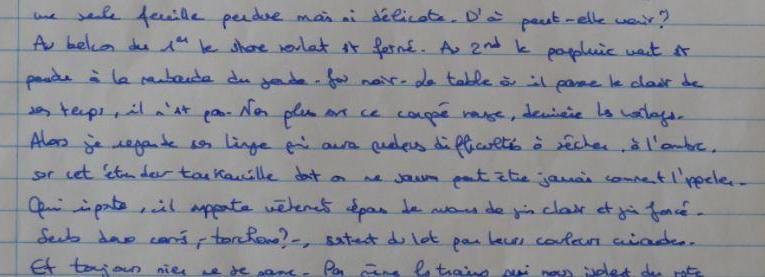 une seule feuille perdue mais si délicate. D'où peut-elle venir?
Au balcon du 1er le store volat est fermé. Au 2nd le parapluie vert est
pendu à la rambarde du garde-fou noir. La table où il passe le clair de
son temps, il n'y est pas. Non plus sur ce canapé rouge, derrière les voilages.
Alors je regarde son linge qui aura quelques difficultés à sécher, à l'ombre,
sur cet étendoir dont on ne saura peut être jamais comment l'appeler.
Qu'importe, il supporte vêtements épars de nuances de gris clair et gris foncé.
Seuls deux carrés, - torchons? -, sortent du lot par leurs couleurs criardes.
Et toujours rien ne se passe. Pas même le train qui nous